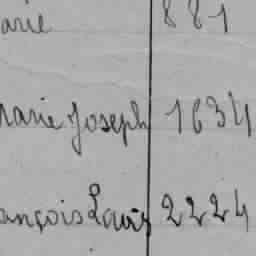 arie 881
Marie Joseph 1634
ançois Louis 2224